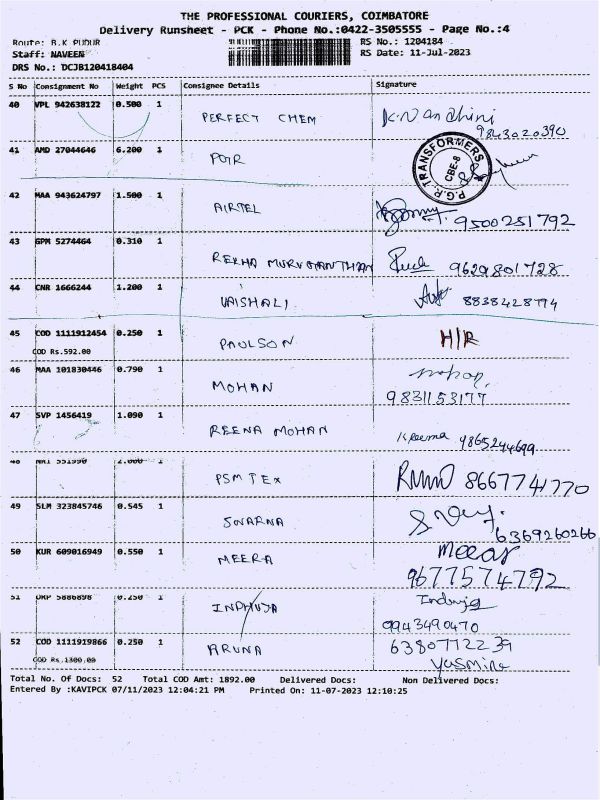 THE PROFESSIONAL COURIERS, COIMBATORE
Delivery Runsheet - PCK - Phone No.:0422-3505555 - Page No.:4
Route: B.K PUDUR RS No.: 1204184
Staff: NAVEEN RS Date: 11-Jul-2023
DRS No.: DCJB120418404
S No Consignment No Weight PCS Consignee Details Signature
40 VPL 942638122 0.500 1 PERFECT CHEM K.Nandhini
9843020390
41 AMD 27044646 6.200 1 PGR P.G.R. TRANSFORMERS CBE-8
42 MAA 943624797 1.500 1 AIRTEL 9500251792
43 GPM 5274464 0.310 1 REKHA MURUGANTHAM 9629801728
44 CNR 1666244 1.200 1 VAISHALI 8838428794
45 COD 1111912454 0.250 1 PAULSON H/R
COD Rs.592.00
46 MAA 101830446 0.790 1 MOHAN
9831153177
47 SVP 1456419 1.090 1 REENA MOHAN 9865244699
48 551990 2.000 1 PSM TEX 8667741770
49 SLM 323845746 0.545 1 SWARNA
6369260266
50 KUR 609016949 0.550 1 MEERA Meear
9677574792
51 5886898 0.250 1 INDHUJA Induja
9943490470
52 COD 1111919866 0.250 1 ARUNA 6380772239
COD Rs.1300.00 Yasmine
Total No. Of Docs: 52 Total COD Amt: 1892.00 Delivered Docs: Non Delivered Docs:
Entered By :KAVIPCK 07/11/2023 12:04:21 PM Printed On: 11-07-2023 12:10:25